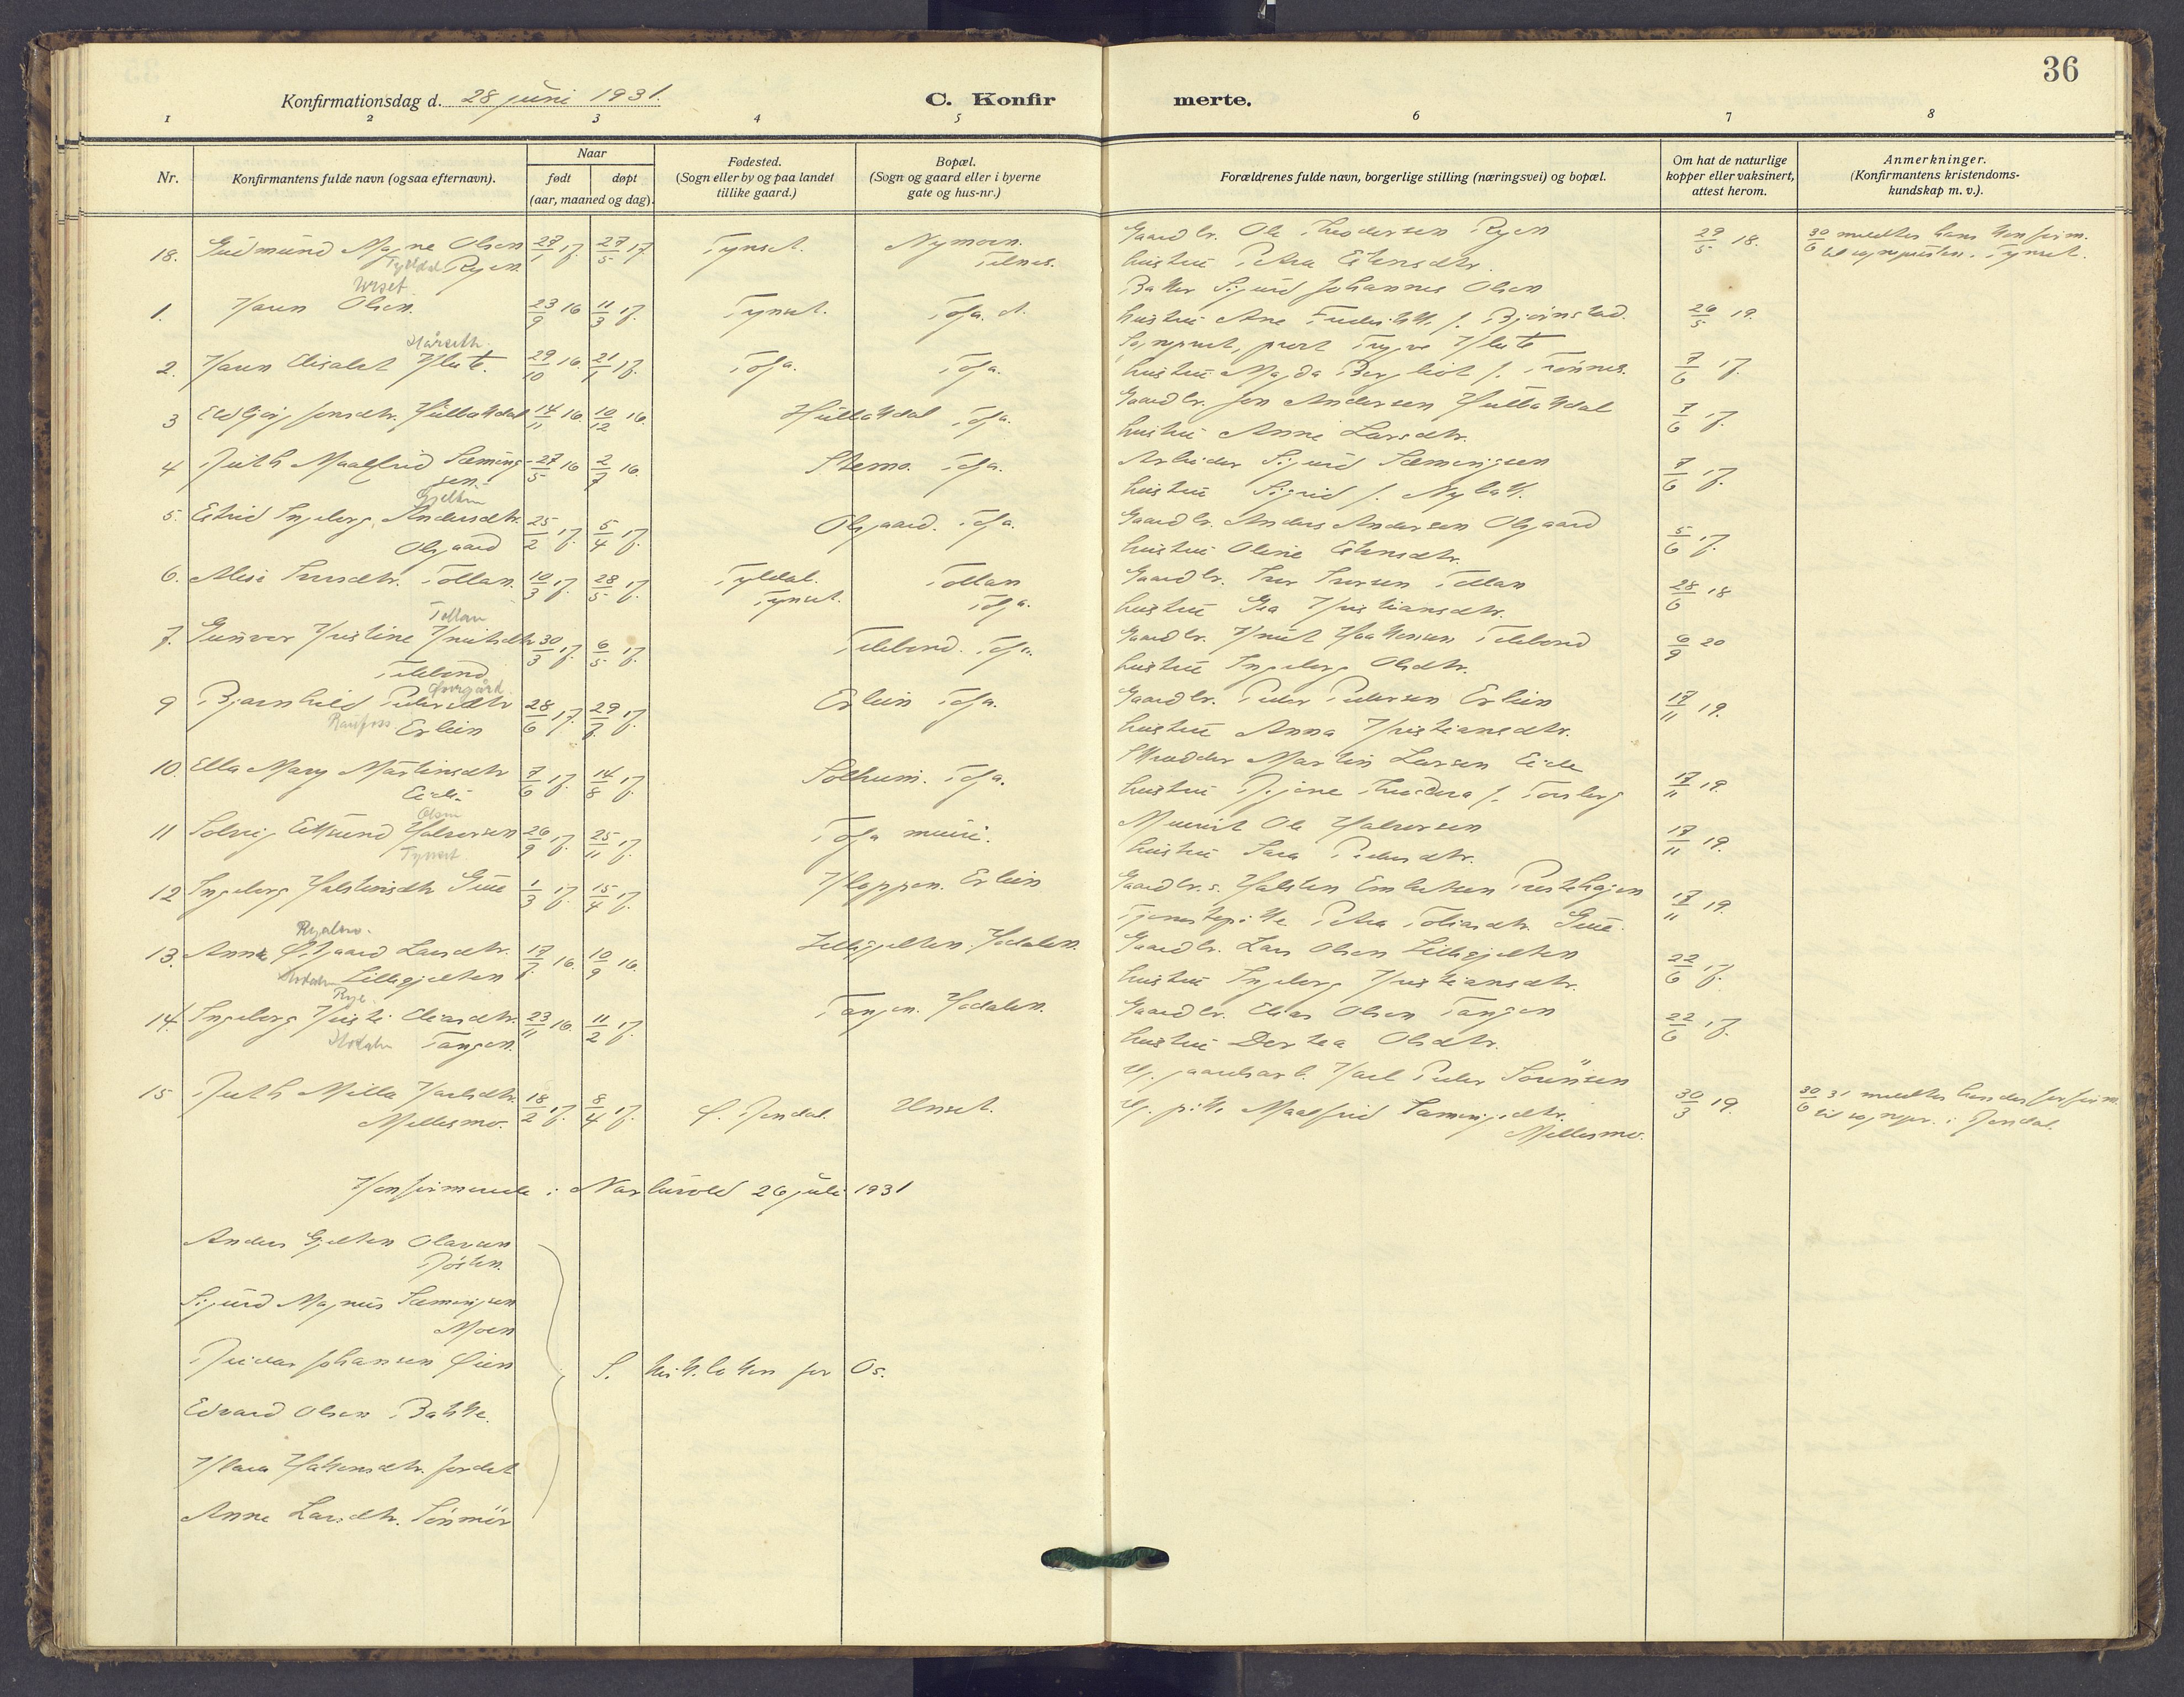 36
Konfirmationsdag d. 28 juni 1931.
C. Konfirmerte.
1 2 3 4 5 6 7 8
Nr.
Konfirmantens fulde navn (ogsaa efternavn).
Naar
født
døpt
(aar, maaned og dag).
Fødested.
(Sogn eller by og paa landet
tillike gaard.)
Bopæl.
(Sogn og gaard eller i byerne
gate og hus-nr.)
Forældrenes fulde navn, borgerlige stilling (næringsvei) og bopæl.
Om hat de naturlige
kopper eller vaksinert,
attest herom.
Anmerkninger.
(Konfirmantens kristendoms-
kundskap m. v.).
18. Gudmund Magne Olsen 27/1 17. 27/5 17. Tynset. Nymoen. Gaardbr. Ole Theodorsen Ryen 29/5 18. 30/6 meldtes hans konfirm.
Tylldal Ryen Telnes. hustru Petra Estensdtr. til sognepresten i Tynset.
Urset
1. Karen Olsen. 23/9 16 11/3 17. Tynset. Tolga st. Baker Sigurd Johannes Olsen 26/5 19.
hustru Ane Fredrikke f. Bjørnstad.
Hårseth
2. Karen Elisabet Klute. 29/10 16. 21/1 17. Tolga. Tolga. Sogneprest, prost Trygve Klute 7/6 17.
hustru Magda Bergliot f. Trønnes.
3 Eldbjørg Jonsdtr. Hullabakdal 14/11 16. 10/12 16. Tolga. Gaardbr. Jon Andersen 7/6 17.
hustru Anne Larsdtr.
4 Ruth Maalfrid Sæming- 27/5 16 2/7 16. Stemo. Tolga. Arbeider Sigurd Sæmingsen 7/6 17.
sen. hustru Sigrid f. Nybakk.
Gjelten
5. Estrid Ingeborg Andersdtr. 25/2 17. 5/4 17. Olsgaard. Tolga. Gaardbr. Anders Andersen Olsgaard 5/6 17.
Olsgaard hustru Oline Estensdtr.
6. Alise Iversdtr. Tollan. 10/3 17. 28/5 17. Tyldal. Tollan Gaardbr. Iver Iversen Tollan 28/6 18
Tynset. Tolga. hustru Gea Kristiansdtr.
Tollan
7. Gunvor Kristine Knutsdtr 30/3 17. 6/5 17. Telebond. Tolga. Gaardbr. Knut Haakensen Telebond 6/9 20
Telebond hustru Ingeborg Olsdtr.
Øvergård
9 Bjarnhild Pedersdtr 28/6 17. 29/7 17. Erlien Tolga. Gaardbr. Peder Pedersen Erlien 17/11 19.
Raufoss. Erlien hustru Anna Kristiansdtr.
10. Ella Mary Martinsdtr 7/6 17. 14/8 17. Solheim. Tolga. Skrædder Martin Larsen Eide 17/11 19.
Eide. hustru Theodora f. Torsberg
Olsen
11 Solveig Halvorsen 26/9 17. 25/11 17. Tolga meieri. Meierist Ole Halvorsen 17/11 19.
Tynset. hustru Sara Pedersdtr.
12 Ingeborg Halstensdtr Gue 1/3 17. 15/4 17. Kloppen. Erlien Gaardbr.s. Halsten Embretsen 17/11 19.
Tjenestepike Petra Tobiasdtr. Gue.
Ryalmo.
13. Anna Ølgaard Larsdtr. 17/7 16. 10/9 16. Lillegjelten. Hodalen. Gaardbr. Lars Olsen Lillegjelten 22/6 17.
Hodalen Lillegjelten hustru Ingeborg Kristiansdtr.
Rye.
14. Ingeborg Kristi Eliasdtr. 23/11 16. 11/2 17. Tangen. Hodalen. Gaardbr. Elias Olsen Tangen 22/6 17.
Hodalen Tangen. hustru Dortea Olsdtr.
15 Ruth Milla Karlsdtr. 18/2 17. 8/4 17. Ø. Rendal. Unset. Ug. gaardsarb. Karl Peder Sørensen 30/3 19. 30/6 31 meldtes hendes konfirm.
Mellesmo. Ug. pike Maalfrid Sæmingsdtr. til sognepr. i Rendal.
Mellesmo.
Konfirmerte i Narbuvold 26 juli 1931
Anders Gjelten Olavsen
Røsten.
Sigurd Magnus Sæmingsen
Moen
Reidar Johansen Øien
Edvard Olsen Bakke.
Klara Hakensdtr. Jordet
Anne Larsdtr. Sømør
S. kirkeboken for Os.